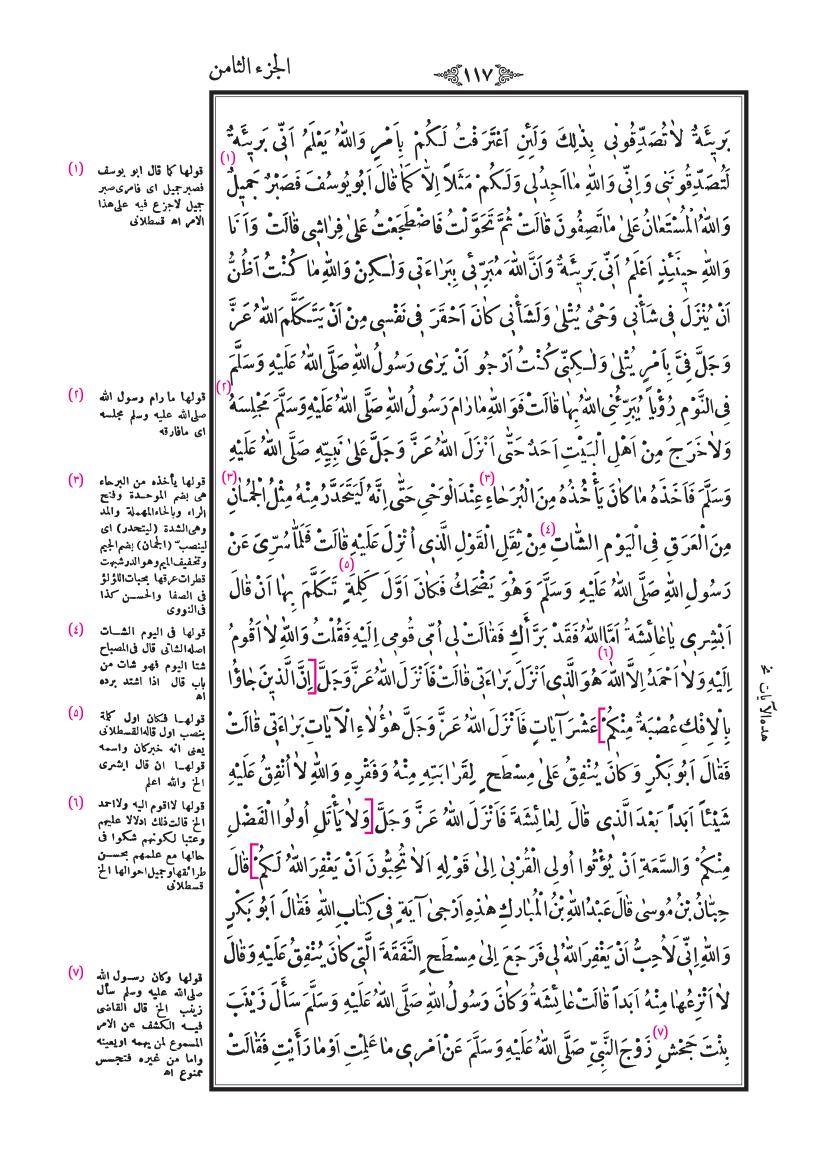 الجزء الثامن
١١٧
بَرِيئَةٌ لَا تُصَدِّقُونِي بِذٰلِكَ وَلَئِنِ اعْتَرَفْتُ لَكُمْ بِأَمْرٍ وَاللّٰهُ يَعْلَمُ أَنِّي بَرِيئَةٌ
لَتُصَدِّقُونَنِي وَإِنِّي وَاللّٰهِ مَا أَجِدُ لِي وَلَكُمْ مَثَلاً إِلَّا كَمَا قَالَ أَبُو يُوسُفَ فَصَبْرٌ جَمِيلٌ (١)
وَاللّٰهُ الْمُسْتَعَانُ عَلَىٰ مَا تَصِفُونَ قَالَتْ ثُمَّ تَحَوَّلْتُ فَاضْطَجَعْتُ عَلَىٰ فِرَاشِي قَالَتْ وَأَنَا
وَاللّٰهِ حِينَئِذٍ أَعْلَمُ أَنِّي بَرِيئَةٌ وَأَنَّ اللّٰهَ مُبَرِّئِي بِبَرَاءَتِي وَلٰكِنْ وَاللّٰهِ مَا كُنْتُ أَظُنُّ
أَنْ يُنْزَلَ فِي شَأْنِي وَحْيٌ يُتْلَىٰ وَلَشَأْنِي كَانَ أَحْقَرَ فِي نَفْسِي مِنْ أَنْ يَتَكَلَّمَ اللّٰهُ عَزَّ
وَجَلَّ فِيَّ بِأَمْرٍ يُتْلَىٰ وَلٰكِنِّي كُنْتُ أَرْجُو أَنْ يَرَىٰ رَسُولُ اللّٰهِ صَلَّى اللّٰهُ عَلَيْهِ وَسَلَّمَ
فِي النَّوْمِ رُؤْيَا يُبَرِّئُنِي اللّٰهُ بِهَا قَالَتْ فَوَاللّٰهِ مَا رَامَ رَسُولُ اللّٰهِ صَلَّى اللّٰهُ عَلَيْهِ وَسَلَّمَ مَجْلِسَهُ (٢)
وَلَا خَرَجَ مِنْ أَهْلِ الْبَيْتِ أَحَدٌ حَتَّىٰ أَنْزَلَ اللّٰهُ عَزَّ وَجَلَّ عَلَىٰ نَبِيِّهِ صَلَّى اللّٰهُ عَلَيْهِ
وَسَلَّمَ فَأَخَذَهُ مَا كَانَ يَأْخُذُهُ مِنَ الْبُرَحَاءِ (٣) عِنْدَ الْوَحْيِ حَتَّىٰ إِنَّهُ لَيَتَحَدَّرُ مِنْهُ مِثْلُ الْجُمَانِ (٣)
مِنَ الْعَرَقِ فِي الْيَوْمِ الشَّاتِ (٤) مِنْ ثِقَلِ الْقَوْلِ الَّذِي أُنْزِلَ عَلَيْهِ قَالَتْ فَلَمَّا سُرِّيَ عَنْ
رَسُولِ اللّٰهِ صَلَّى اللّٰهُ عَلَيْهِ وَسَلَّمَ وَهُوَ يَضْحَكُ فَكَانَ أَوَّلَ كَلِمَةٍ (٥) تَكَلَّمَ بِهَا أَنْ قَالَ
أَبْشِرِي يَا عَائِشَةُ أَمَّا اللّٰهُ فَقَدْ بَرَّأَكِ فَقَالَتْ لِي أُمِّي قُومِي إِلَيْهِ فَقُلْتُ وَاللّٰهِ لَا أَقُومُ
إِلَيْهِ وَلَا أَحْمَدُ (٦) إِلَّا اللّٰهَ هُوَ الَّذِي أَنْزَلَ بَرَاءَتِي قَالَتْ فَأَنْزَلَ اللّٰهُ عَزَّ وَجَلَّ [إِنَّ الَّذِينَ جَاؤُا
بِالْإِفْكِ عُصْبَةٌ مِنْكُمْ] عَشْرَ آيَاتٍ فَأَنْزَلَ اللّٰهُ عَزَّ وَجَلَّ هٰؤُلَاءِ الْآيَاتِ بَرَاءَتِي قَالَتْ
فَقَالَ أَبُو بَكْرٍ وَكَانَ يُنْفِقُ عَلَىٰ مِسْطَحٍ لِقَرَابَتِهِ مِنْهُ وَفَقْرِهِ وَاللّٰهِ لَا أُنْفِقُ عَلَيْهِ
شَيْئاً أَبَداً بَعْدَ الَّذِي قَالَ لِعَائِشَةَ فَأَنْزَلَ اللّٰهُ عَزَّ وَجَلَّ [وَلَا يَأْتَلِ أُولُوا الْفَضْلِ
مِنْكُمْ وَالسَّعَةِ أَنْ يُؤْتُوا أُولِي الْقُرْبَىٰ إِلَىٰ قَوْلِهِ أَلَا تُحِبُّونَ أَنْ يَغْفِرَ اللّٰهُ لَكُمْ] قَالَ
حِبَّانُ بْنُ مُوسَىٰ قَالَ عَبْدُ اللّٰهِ بْنُ الْمُبَارَكِ هٰذِهِ أَرْجَىٰ آيَةٍ فِي كِتَابِ اللّٰهِ فَقَالَ أَبُو بَكْرٍ
وَاللّٰهِ إِنِّي لَأُحِبُّ أَنْ يَغْفِرَ اللّٰهُ لِي فَرَجَعَ إِلَىٰ مِسْطَحٍ النَّفَقَةَ الَّتِي كَانَ يُنْفِقُ عَلَيْهِ وَقَالَ
لَا أَنْزِعُهَا مِنْهُ أَبَداً قَالَتْ عَائِشَةُ وَكَانَ رَسُولُ اللّٰهِ صَلَّى اللّٰهُ عَلَيْهِ وَسَلَّمَ سَأَلَ زَيْنَبَ
بِنْتَ جَحْشٍ (٧) زَوْجَ النَّبِيِّ صَلَّى اللّٰهُ عَلَيْهِ وَسَلَّمَ عَنْ أَمْرِي مَا عَلِمْتِ أَوْ مَا رَأَيْتِ فَقَالَتْ
هذه الآيات نخ
(١) قولها كما قال ابو يوسف
فصبر جميل اى فامرى صبر
جميل لا جزع فيه على هذا
الامر اه قسطلانى
(٢) قولها ما رام رسول الله
صلى الله عليه وسلم مجلسه
اى ما فارقه
(٣) قولها يأخذه من البرحاء
هى بضم الموحدة وفتح
الراء وبالحاء المهملة والمد
وهى الشدة (ليتحدر) اى
لينصبّ (الجمان) بضم الجيم
وتخفيف الميم وهو الدر شبهت
قطرات عرقها بحبات اللؤلؤ
فى الصفا والحسن كذا
فى النووى
(٤) قولها فى اليوم الشات
اصله الشاتى قال فى المصباح
شتا اليوم فهو شات من
باب قال اذا اشتد برده
اه
(٥) قولها فكان اول كلمة
بنصب اول قاله القسطلانى
يعنى انه خبر كان واسمه
قولها ان قال ابشرى
الخ والله اعلم
(٦) قولها لا اقوم اليه ولا احمد
الخ قالت ذلك ادلالا عليهم
وعتبا لكونهم شكوا فى
حالها مع علمهم بحسن
طرائقها وجميل احوالها الخ
قسطلانى
(٧) قولها وكان رسول الله
صلى الله عليه وسلم سأل
زينب الخ قال القاضى
فيه الكشف عن الامر
المسموع لمن يهمه او يعينه
واما من غيره فتجسس
ممنوع اه